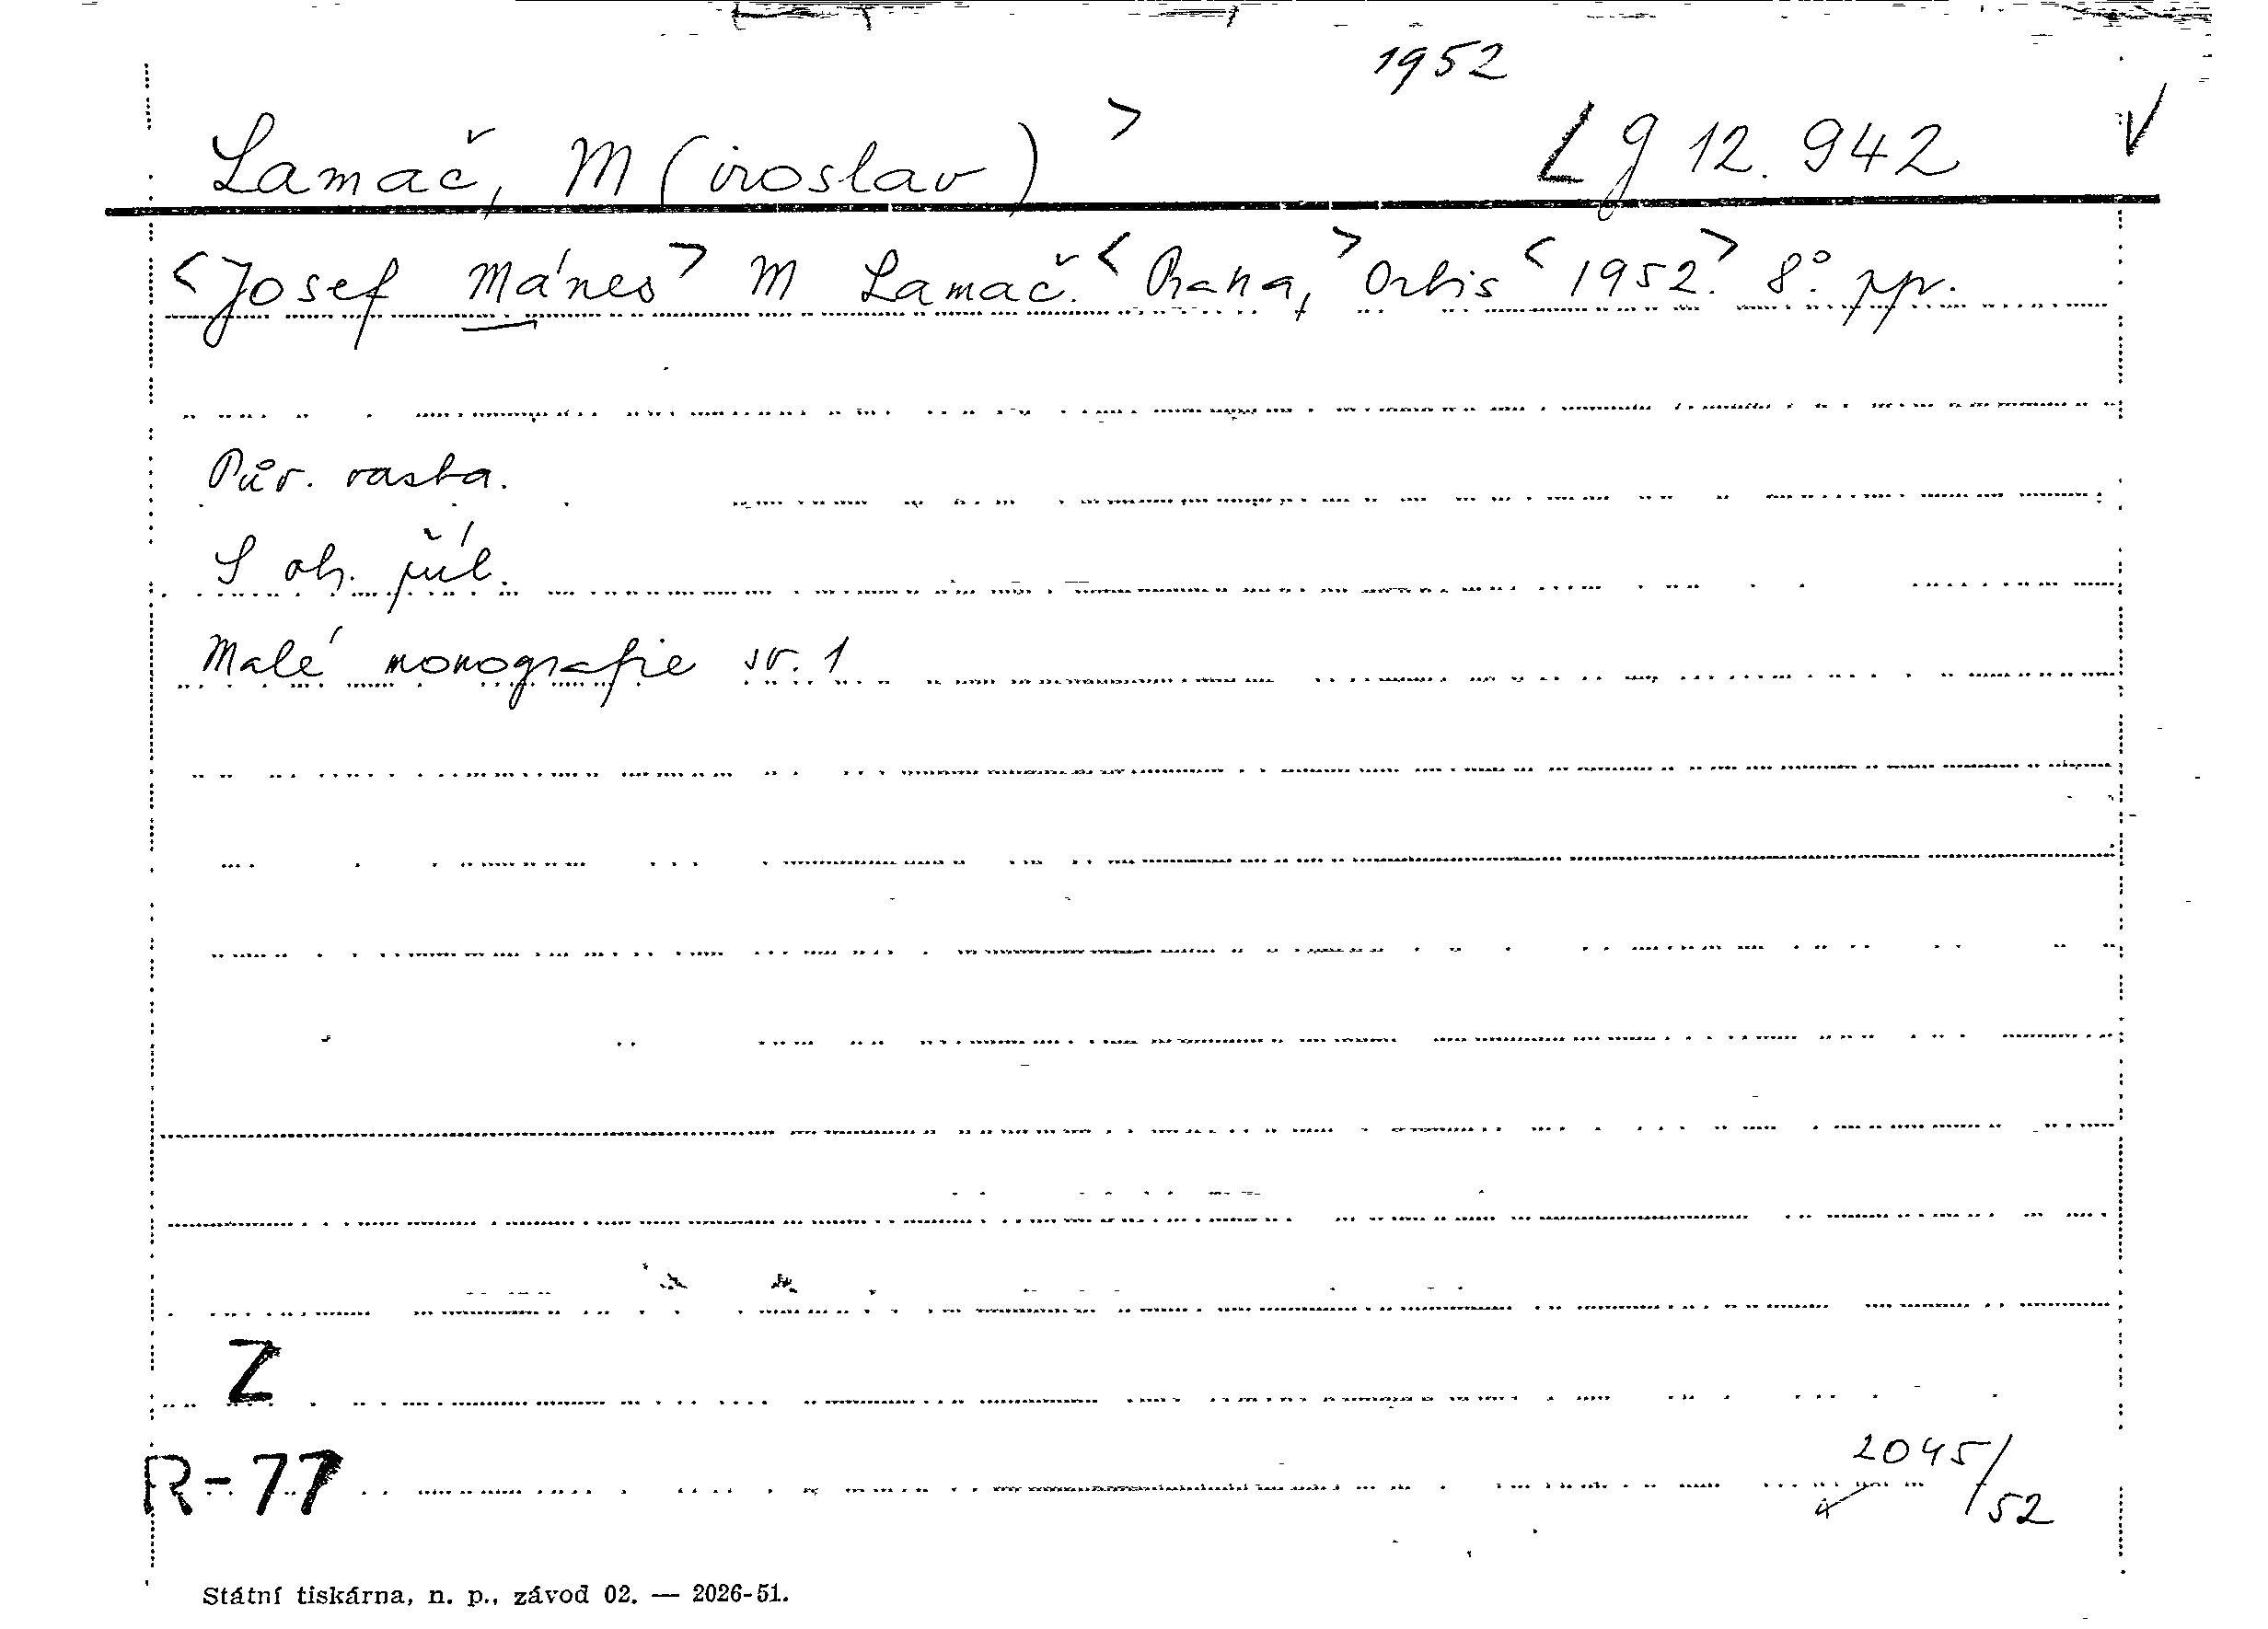 1952
Lamač, M(iroslav) > Lg 12.942 V
<Josef Mánes> M Lamač. <Praha,> Orbis <1952.> 8° pp.
Pův. vazba.
S ob. příl.
Malé monografie sv. 1
Z
R-77
2045/52
Státní tiskárna, n. p., závod 02. — 2026-51.